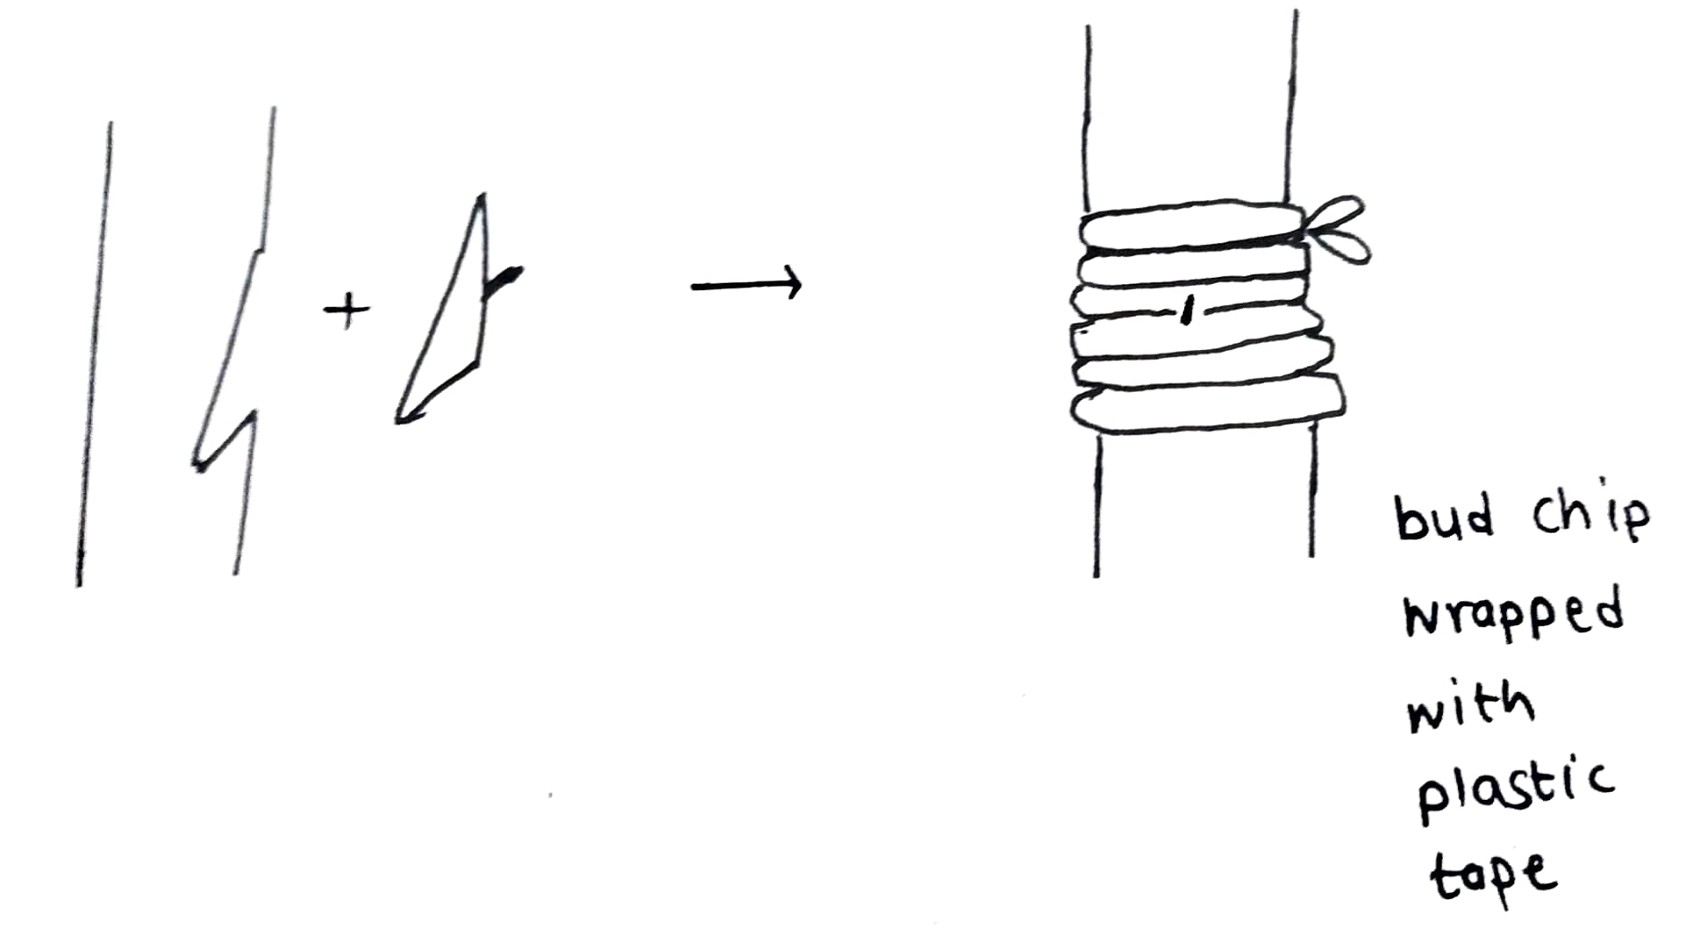 +
bud chip
wrapped
with
plastic
tape